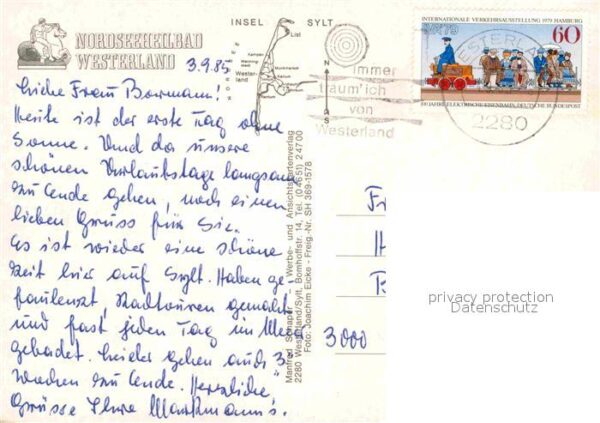 INSEL SYLT
NORDSEEHEILBAD
WESTERLAND
List
Kampen
Wester-
land
immer
traum'ich
von
Westerland
2280
INTERNATIONALE VERKEHRSAUSSTELLUNG 1979 HAMBURG
60
100 JAHRE ELEKTRISCHE EISENBAHN, DEUTSCHE BUNDESPOST
3.9.85
Liebe Frau Bormann!
Heute ist der erste Tag ohne
Sonne. Und da unsere
schönen Urlaubstage langsam
zu Ende gehen, noch einen
lieben Gruss für Sie.
Es ist wieder eine schöne
Zeit hier auf Sylt. Haben ge-
faulenzt, Radtouren gemacht
und fast jeden Tag im Meer
gebadet. Leider gehen auch 3
Wochen zu Ende. Herzliche
Grüsse Ihre
Manfred Schaper Werbe- und Ansichtskartenverlag
2280 Westerland/Sylt, Bomhoffstr. 14, Tel. (04651) 24700
Foto: Joachim Eicke - Freig.-Nr. SH 369-1578
3000
privacy protection
Datenschutz